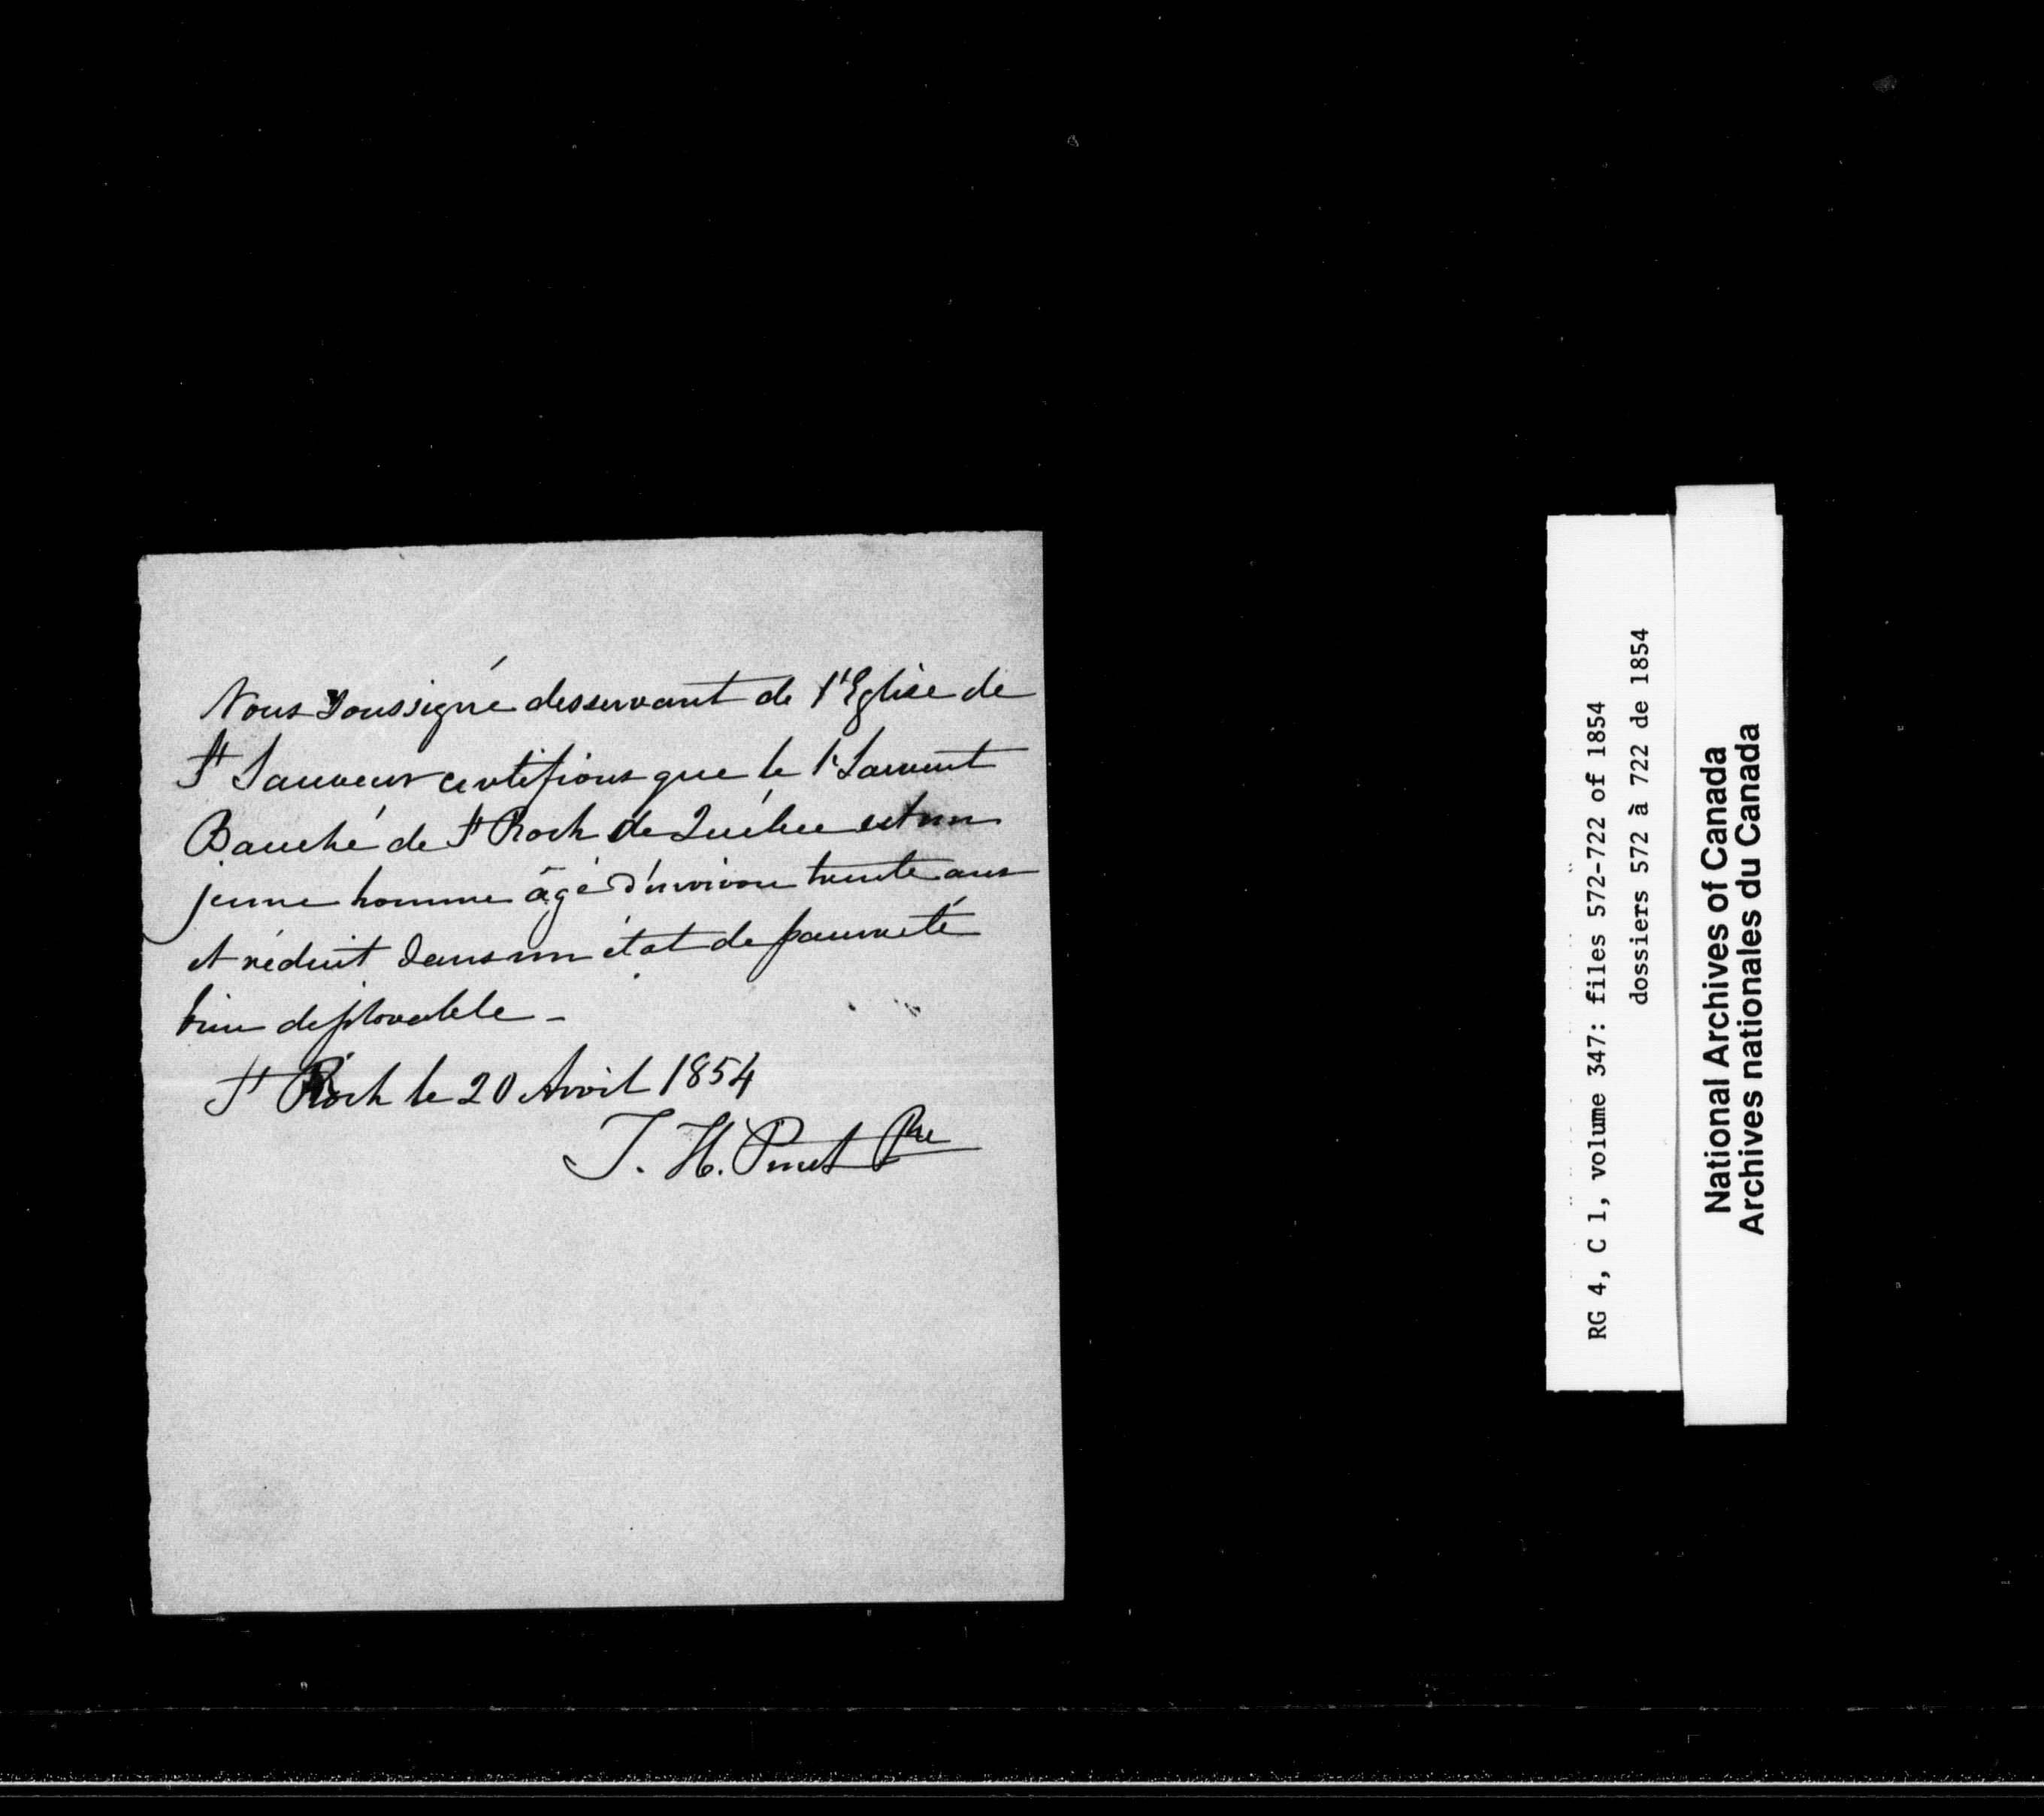 Nous Soussigné desservant de l'Eglise de
St Sauveur certifions que le Sr Laurent
Bauché de St Roch de Québec est un
jeune homme âgé d'environ trente ans
et réduit dans un état de pauvreté
bien déplorable -
St Roch le 20 Avril 1854
J. H. Ptre
RG 4, C 1, volume 347: files 572-722 of 1854
dossiers 572 à 722 de 1854
National Archives of Canada
Archives nationales du Canada